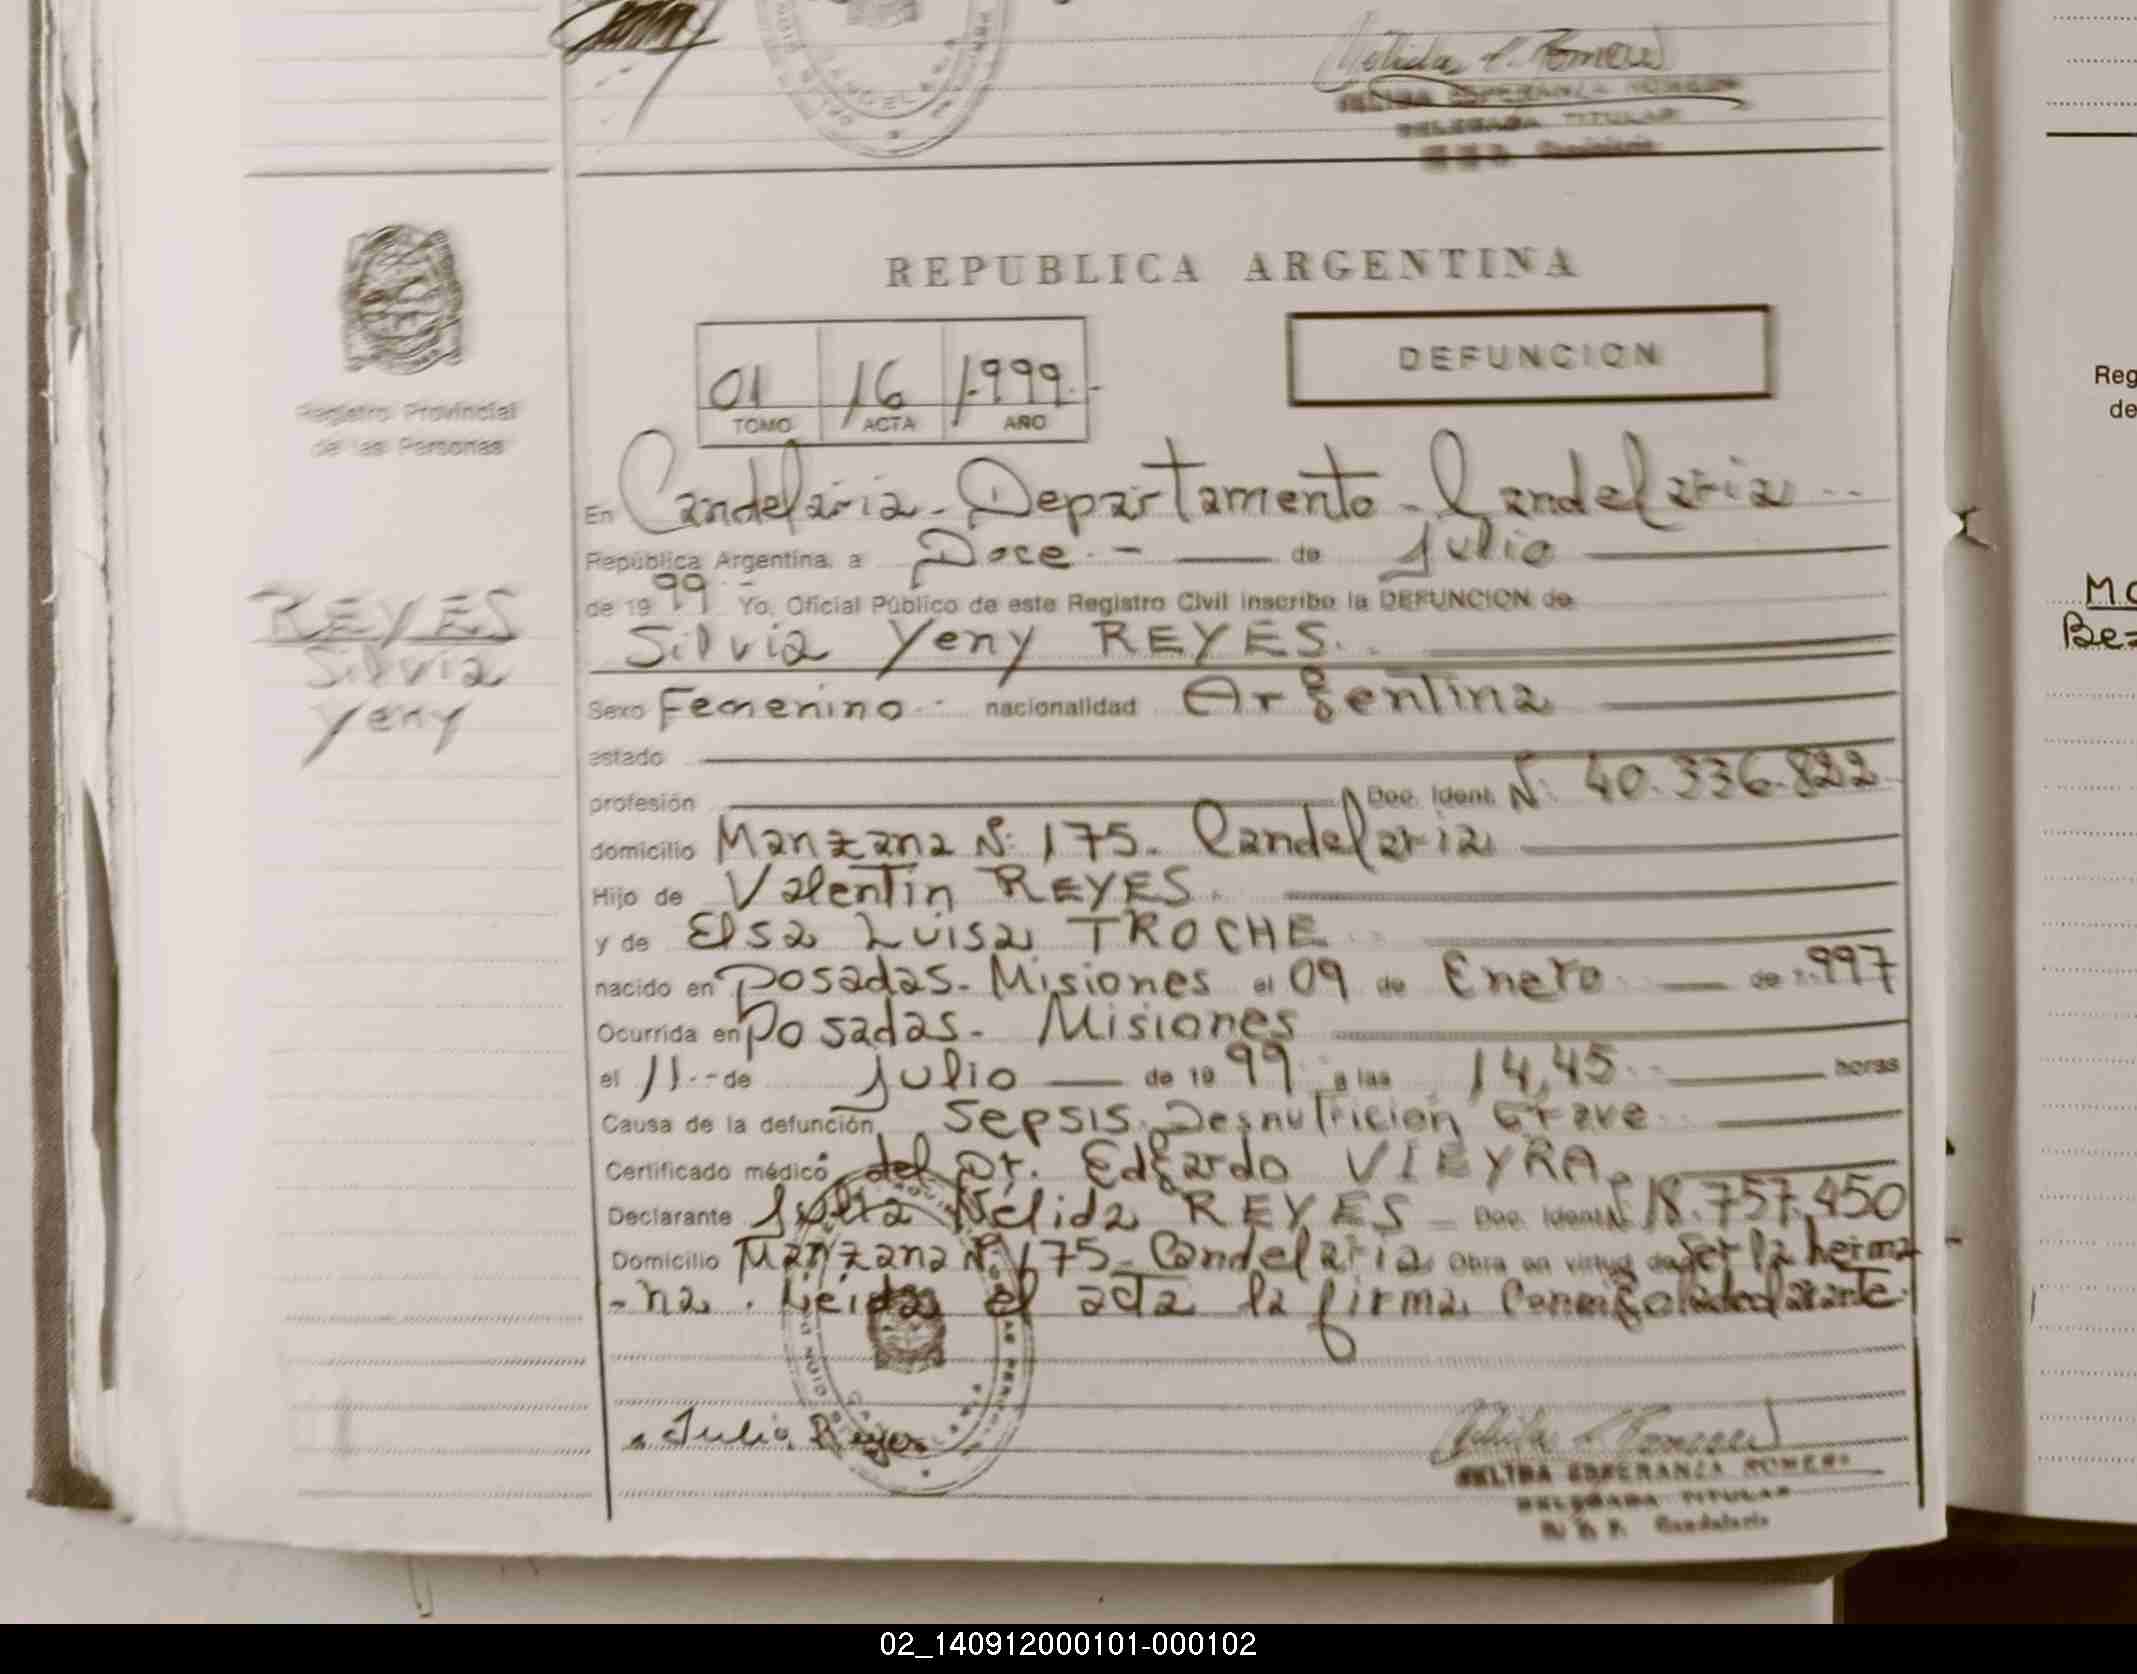 REPUBLICA ARGENTINA
DEFUNCION
01 16 1.999.-
TOMO ACTA AÑO
Registro Provincial
de las Personas
REYES
Silvia
Yeny
En Candelaria - Departamento - Candelaria --
República Argentina, a Doce.- — de Julio
de 19 99.- Yo, Oficial Público de este Registro Civil inscribo la DEFUNCION de
Silvia Yeny REYES.
Sexo Femenino.- nacionalidad Argentina
estado
profesión Doc. Ident. Nº: 40.336.822
domicilio Manzana Nº: 175 - Candelaria
Hijo de Valentin REYES.
y de Elsa Luisa TROCHE
nacido en Posadas - Misiones el 09 de Enero — de 1.997
Ocurrida en Posadas - Misiones
el 11.- de Julio — de 19 99 a las 14,45 horas
Causa de la defunción Sepsis. Desnutrición Grave
Certificado médico del Dr. Edgardo VIEYRA.
Declarante Julia Nélida REYES - Doc. Ident. Nº 18.757.450
Domicilio Manzana Nº 175 - Candelaria Obra en virtud de ser la herma-
-na. Leida el acta la firma conmigo la declarante.
Julia Reyes
ESPERANZA ROMERO
DELEGADA TITULAR
Candelaria
Reg
de
02_140912000101-000102